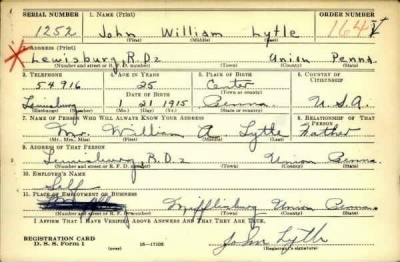 SERIAL NUMBER 1. NAME (Print) ORDER NUMBER
1252 John William Lytle 164 V
(First) (Middle) (Last)
2. ADDRESS (Print)
Lewisburg, R.D2 Union Penna.
(Number and street or R. F. D. number) (Town) (County) (State)
3. TELEPHONE 4. AGE IN YEARS 5. PLACE OF BIRTH 6. COUNTRY OF CITIZENSHIP
54916 25 Center
DATE OF BIRTH
Lewisburg 1 21 1915 Penna. U.S.A.
(Exchange) (Number) (Mo.) (Day) (Yr.) (State or country)
7. NAME OF PERSON WHO WILL ALWAYS KNOW YOUR ADDRESS 8. RELATIONSHIP OF THAT PERSON
Mr. William A Lytle Father
(Mr., Mrs., Miss) (First) (Middle) (Last)
9. ADDRESS OF THAT PERSON
Lewisburg, R.D2 Union Penna.
(Number and street or R. F. D. number) (Town) (County) (State)
10. EMPLOYER'S NAME
Self
11. PLACE OF EMPLOYMENT OR BUSINESS
Mifflinburg Union Penna.
(Number and street or R. F. D. number) (Town) (County) (State)
I AFFIRM THAT I HAVE VERIFIED ABOVE ANSWERS AND THAT THEY ARE TRUE.
REGISTRATION CARD
D. S. S. Form 1 (over) 16—17105 John Lytle
(Registrant's signature)